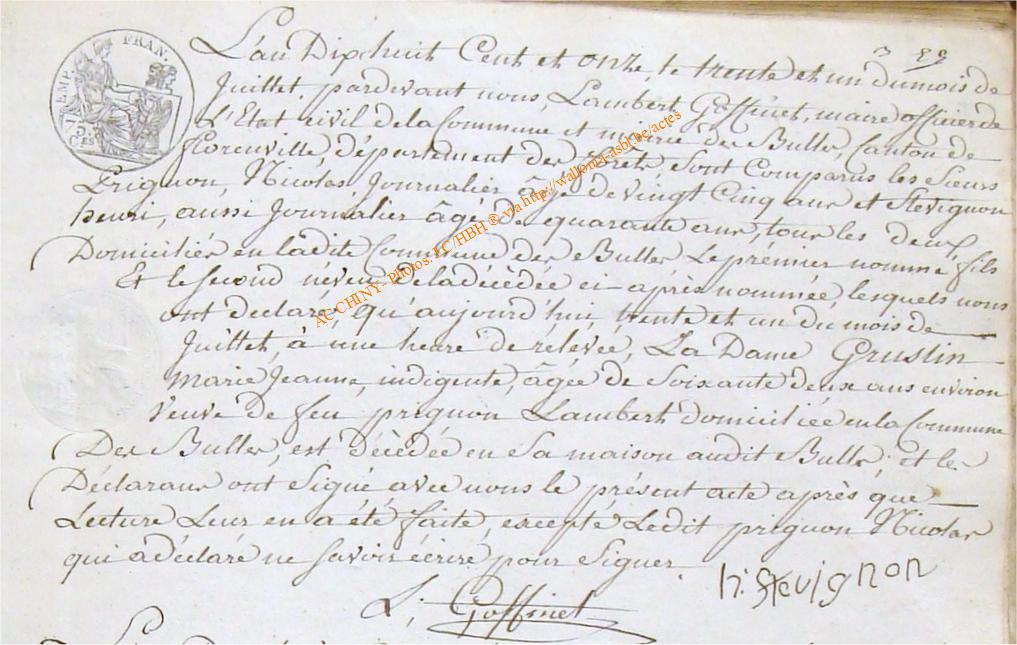 L'an Dix huit Cent et onze, le trente et un du mois de
Juillet, pardevant nous, Lambert Goffinet, maire officier de
L'Etat civil de la Commune et mairie des Bulles, Canton de
florenville, département des forêts, sont Comparus les Sieurs
Prignon, Nicolas, Journalier âgé de vingt Cinq ans et Stevignon
henri, aussi Journalier âgé de quarante ans, tous les deux
Domiciliés en ladite Commune des Bulles Le prémier nommé fils
Et le second néveu de la décédée ci-après nommée, lesquels nous
ont declaré, qu'aujourd'hui, trente et un du mois de
Juillet, à une heure de rélevée, La Dame Gruslin
Marie Jeanne, indigente, âgée de soixante deux ans environ
Veuve de feu prignon Lambert domiciliée en la Commune
Des Bulles, est Décédée en Sa maison audit Bulle; et les
Déclarans ont Signé avec nous le présent acte après que
Lecture Leur en a été faite, excepté Ledit prignon Nicolas
qui a déclaré ne savoir écrire pour Signer.
h: stevignon
L; Goffinet
TIMP. FRAN.
AC CHINY- photos: LC/HBH ® via http://wallonia-asbl.be/actes